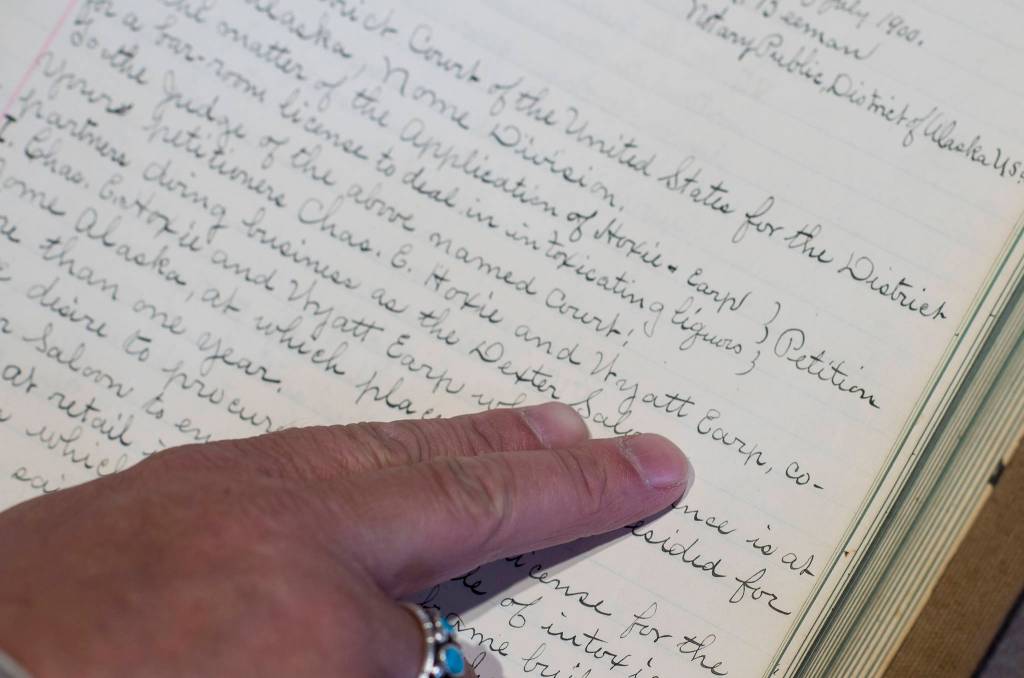 July 1900.
Notary Public, District of Alaska U.S.
Court of the United States for the District
Alaska, Nome Division.
matter of the Application of Hoxie & Earp }
for a bar-room license to deal in intoxicating liquors } Petition
To the Judge of the above named Court:
Your petitioners Chas. E. Hoxie and Wyatt Earp, co-
partners doing business as the Dexter
Chas. E. Hoxie and Wyatt Earp is at
Alaska, at which resided for
than one year.
desire to license for the
Saloon to of
at retail frame
which